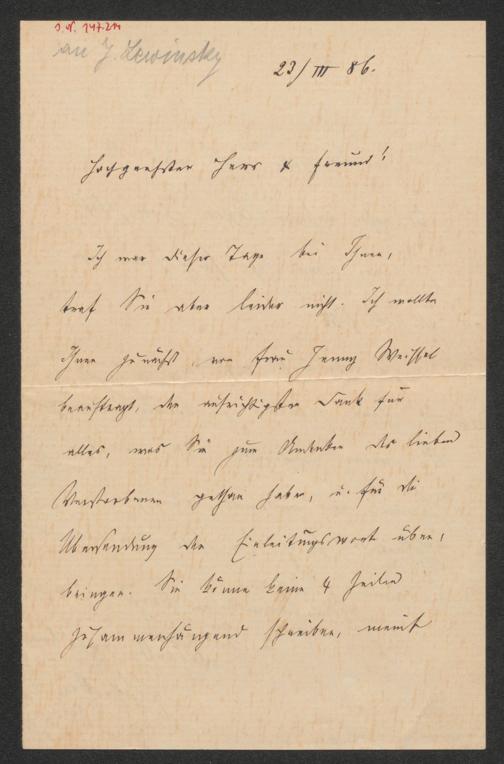 J. N. 147.214
an J. Lewinsky
23/III 86.
Hochgeehrter Herr & Freund!
Ich war dieser Tage bei Ihnen,
traf Sie aber leider nicht. Ich wollte
Ihnen zunächst, von Frau Jenny Weissel
beauftragt, den aufrichtigsten Dank für
alles, was Sie zum Andenken des lieben
Verstorbenen gethan haben, u. für die
Übersendung der Einleitungsworte über-
bringen. Sie könne keine 4 Zeilen
zusammenhängend schreiben, meint